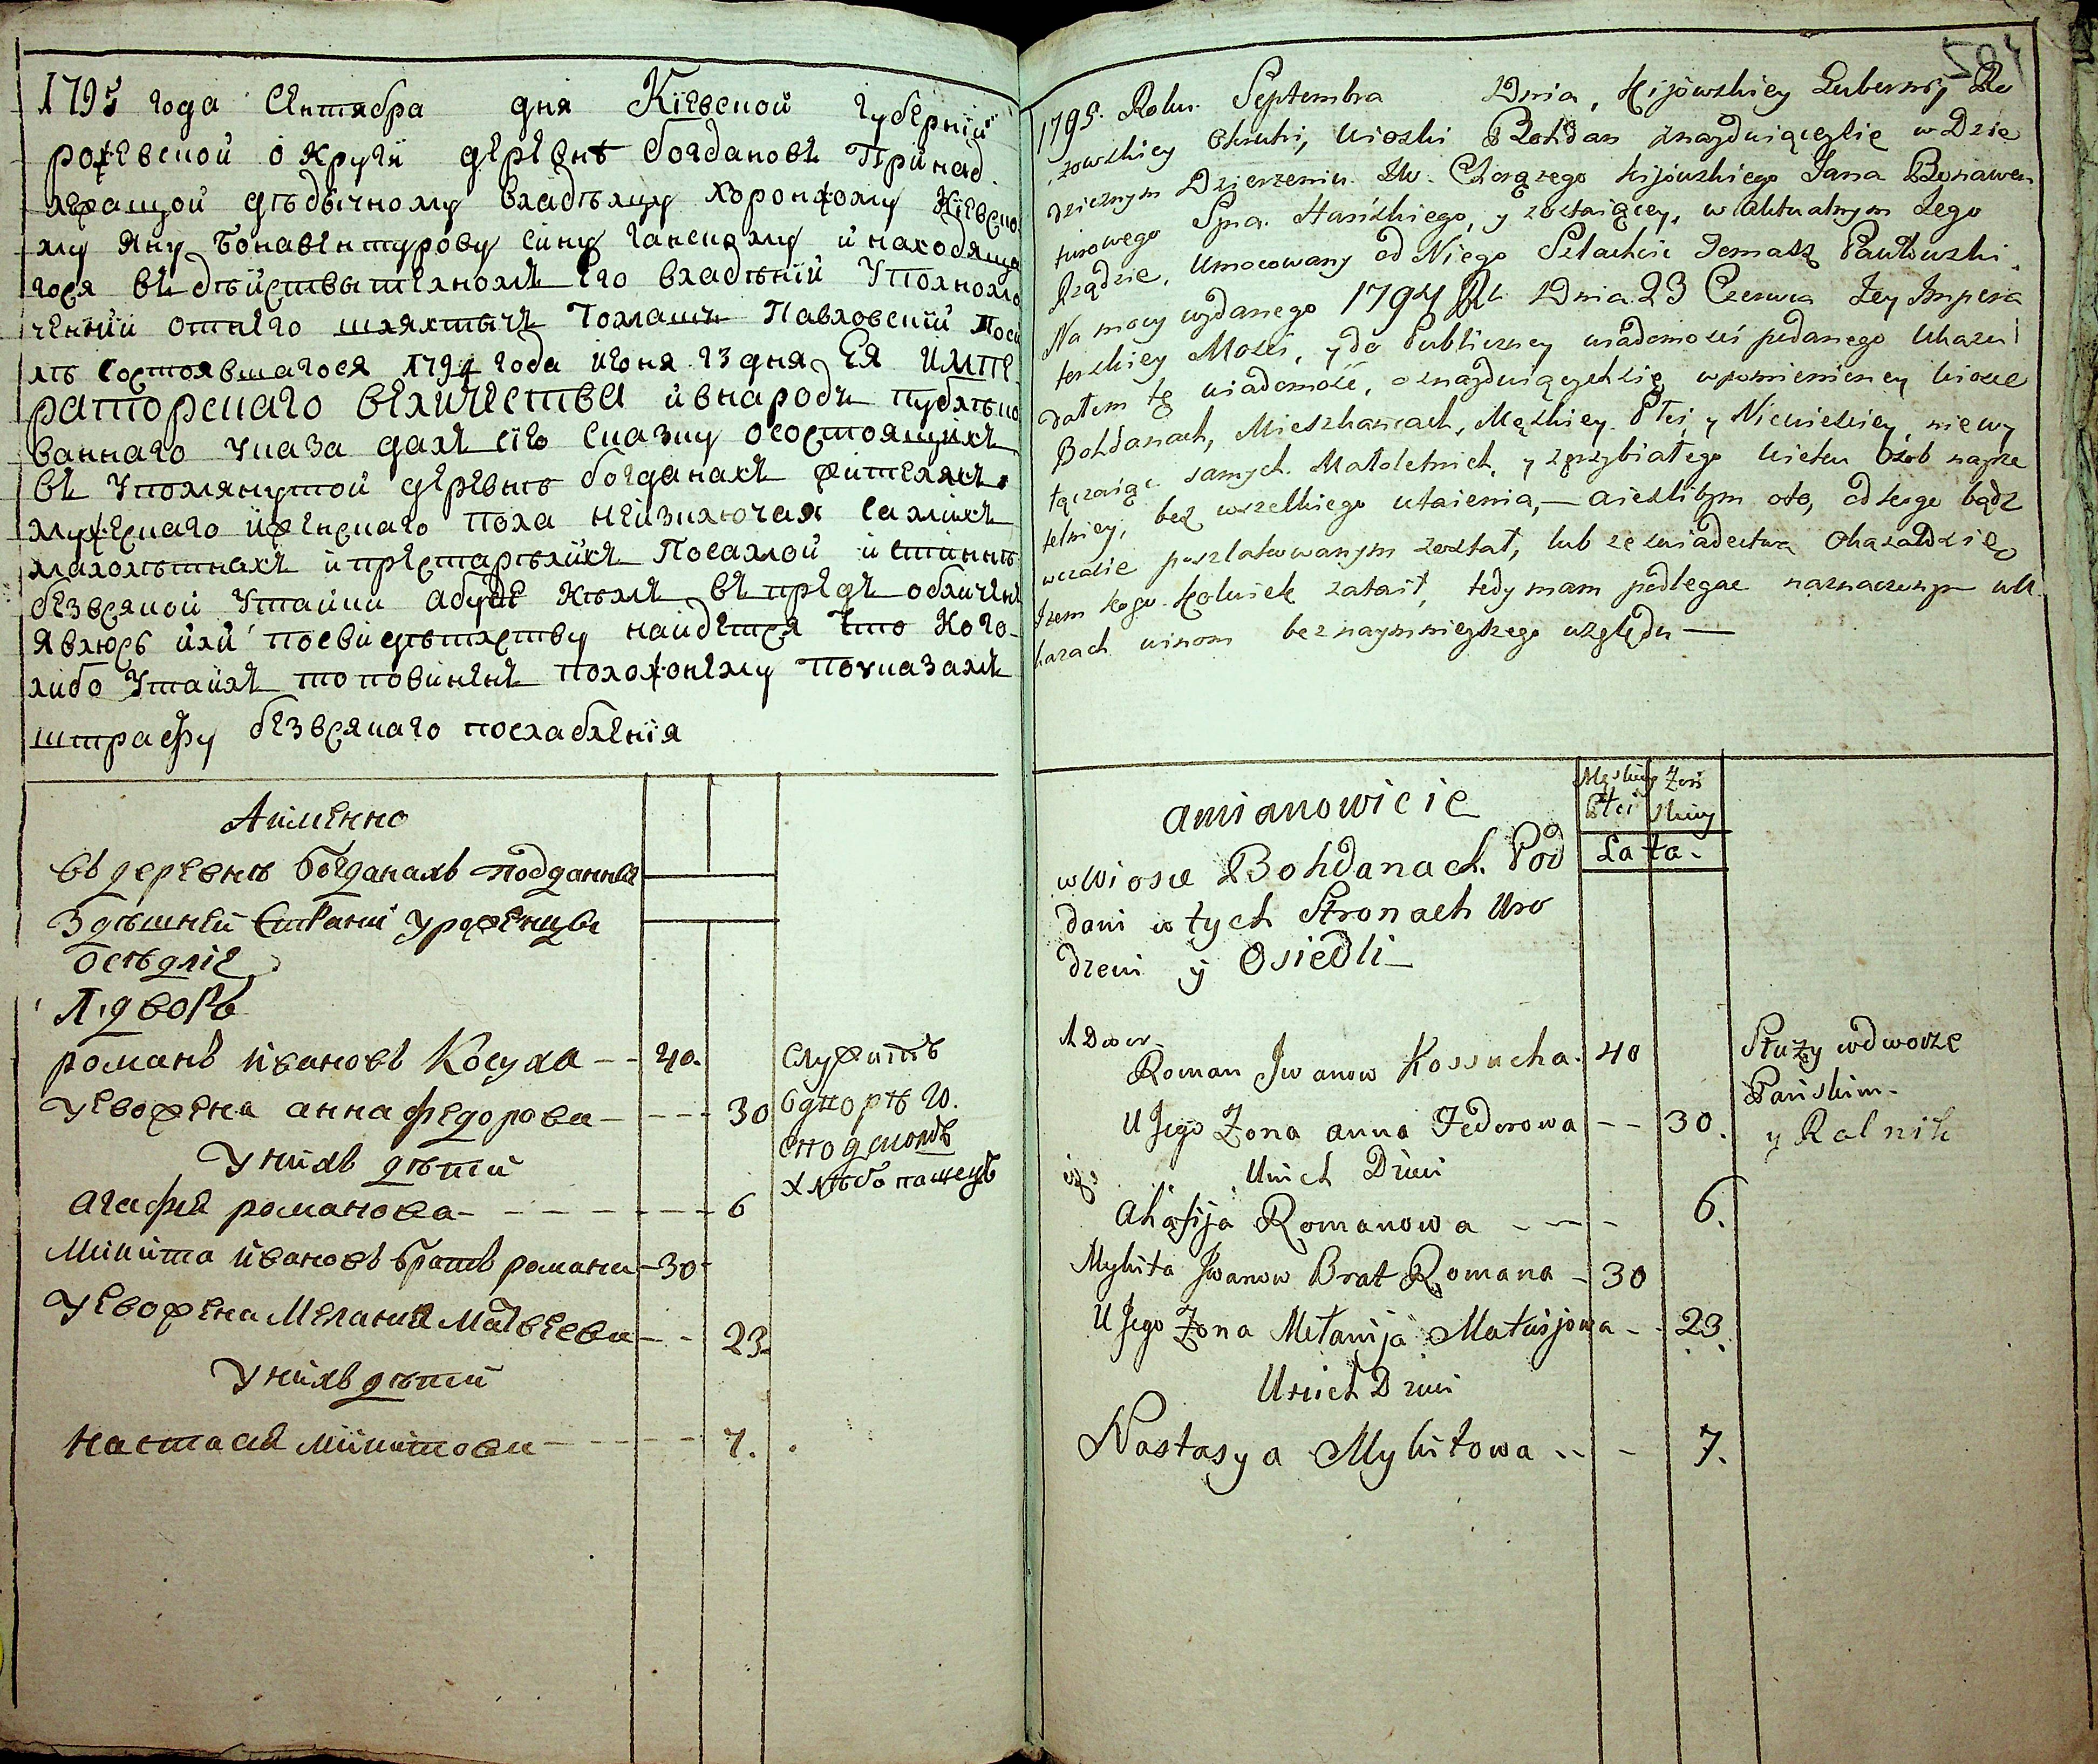 1795 года Сентября дня Кіевской Губерніи
рожевской округи деревнѣ богдановъ Принад
лежащой дѣдычному владѣлцу хоронжому Кіевско
му Яну Бонавентурову сину ганскому и находяща
гося въ дѣйствытелномъ Его владѣніи Уполномо
ченній отнего шляхтычъ Томашъ Павловскій Поси
лѣ состоявшагося 1794 года июня 23 дня Ея ИМПЕ
раторскаго величества ивнародъ публѣко
ваннаго указа далъ сію сказку осостоящихъ
въ упомянутой деревнѣ богданахъ жителяхъ
мужескаго иженскаго пола неизключая самихъ
малолѣтнахъ ипрестарѣлихъ Посамой истиннѣ
безвсякой утайки абуде кѣмъ въ предь обличенъ
явлюсь или посвидѣтелству найдется что кого
либо утаилъ то повиненъ положонему поуказамъ
штрафу безвсякаго послабленія
Аименно
въ деревнѣ Богданахъ подданные
Здѣшней Сторани уроженцы
осѣдліе
1. дворъ
романъ ивановъ Косуха -- 40.
Уевожена анна федорова --- 30
Унихъ дѣти
агафія романова ------ 6
Микита ивановъ братъ романа - 30
Уевожена Меланія Матвеева -- 23
Унихъ дѣти
настасія микитова ---- 7.
Служитъ
хлѣбопашецъ
504
1795. Roku. Septembra Dnia, Kijowskiey Gubernij Ro
żowskiey Okruhi, Wioski Bohdan znayduiąceysię w Dzie
dzicznym Dzierżeniu JW. Chorążego kijowskiego Jana Bonawen
turowego Syna Hanskiego, y zostaiącey, w Aktualnym Jego
Rządzie, Umocowany od Niego Szlachcic Jomasz Pawłowski.
Na mocy wydanego 1794 R. Dnia 23 Czerwca Jey Impera
torskiey Mości, y do Publiczney wiadomości podanego Ukazu
dałem tę wiadomość, o znayduiącychsię wpomienioney wiosce
Bohdanach, Mieszkańcach, Męzkiey Płci y Niewieściey, nie wy
łączaiąc samych Małoletnich, y zgrzybiałego wieku Osób nayrze
telniey, bez wszelkiego utaienia,— aieżlibym oto, od kogo bądz
wczasie poszlakowanym został, lub ze świadectwa Okazałosię
żem kogo kolwiek zataił, tedy mam podlegac naznaczonym w U.
kazach winom beznaymnieyszego względu —
amianowicie
Męskiey Płci
Żeń skiey
Lata.
w wiosce Bohdanach Pod
dani w tych Stronach Uro
dzeni y Osiedli —
1 Dwor.
Roman Jwanow Kossucha. 40
U Jego Zona anna Fedorowa -- 30.
Unich Dzieci
Ahafija Romanowa --- 6.
Mykita Jwanow Brat Romana - 30
U Jego Zona Mełanija Matwijowa - - 23.
Unich Dzieci
Nastasya Mykitowa -- - 7.
Służy wdworze
Pańskim -
y Rolnik